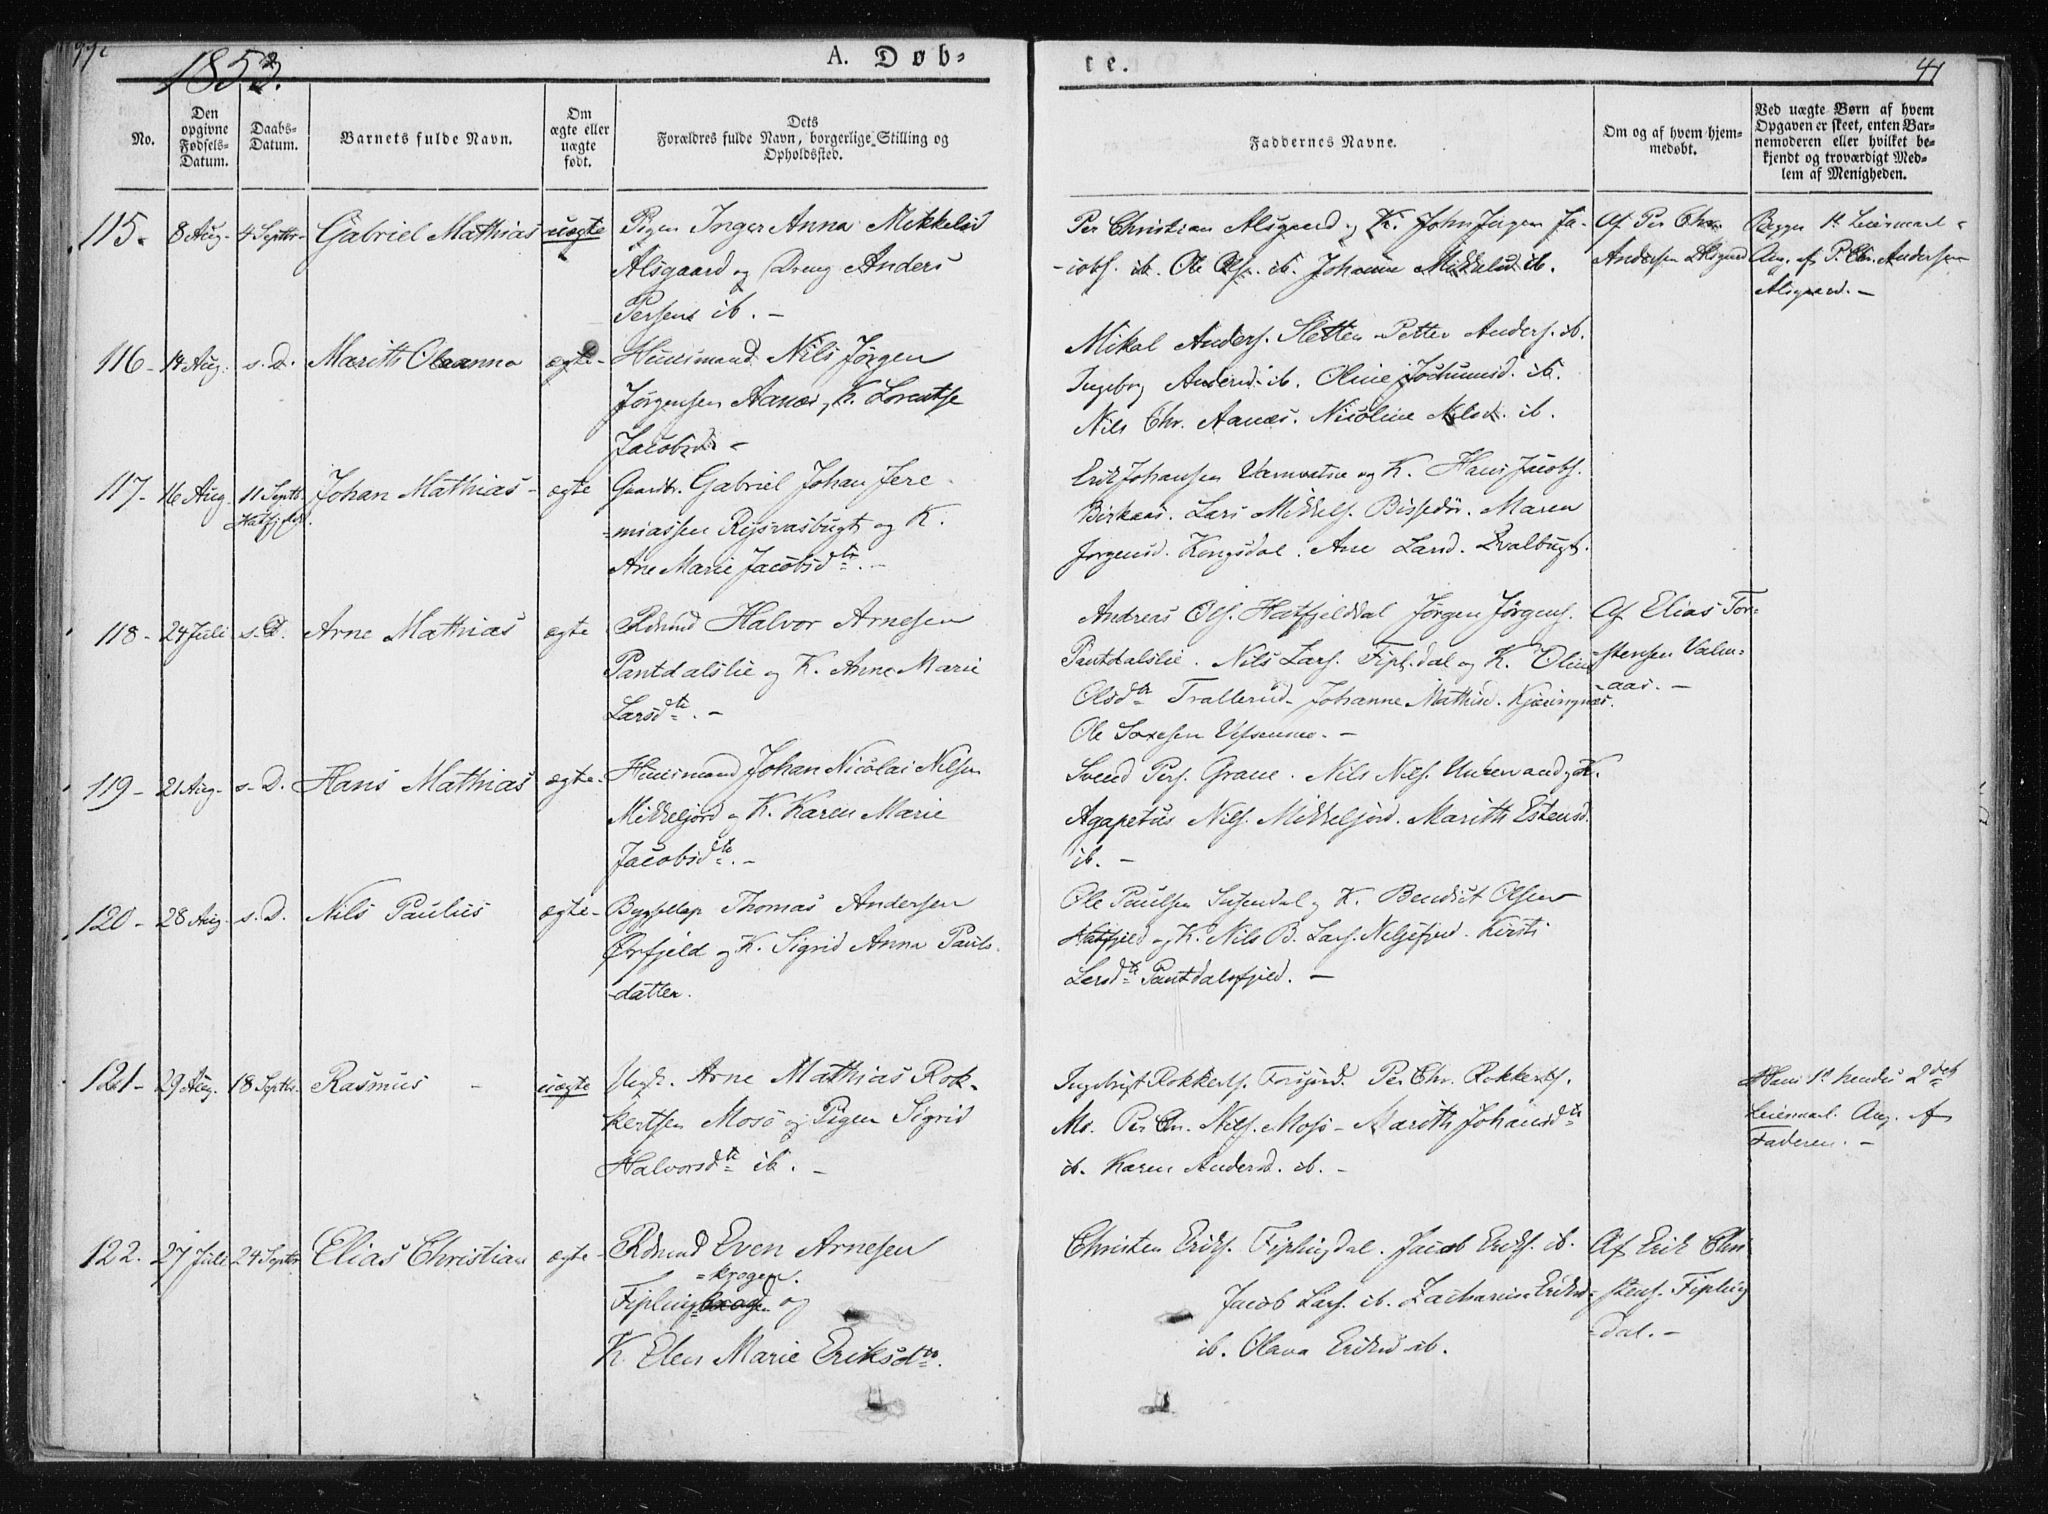 1853.
A. Døb-
te.
41
No.
Den opgivne Fødsels-Datum.
Daabs-Datum.
Barnets fulde Navn.
Om ægte eller uægte født.
Dets Forældres fulde Navn, borgerlige Stilling og Opholdssted.
Faddernes Navne.
Om og af hvem hjem-medøbt.
Ved uægte Børn af hvem Opgaven er skeet, enten Bar-nemoderen eller hvilket be-kjendt og troværdigt Med-lem af Menigheden.
115. 8 Aug. 4 Septbr. Gabriel Mathias uægte Pigen Inger Anna Mikkelsd
Alsgaard og Dreng Anders
Persens ib. -
Per Christian Alsgaard og K. John Jørgen Ja-
-cobs. ib. Ole Ols. ib. Johanne Mikkelsd ib.
Af Per Chr.
Andersen Alsgaard
Begges 1st Leiermaal
Ang. af P. Chr. Andersen
Alsgaard. -
116 - 14 Aug. s. D. Marith Oleanna ægte - Huusmand Nils Jørgen
Jørgensen Aanæs og K. Lorentse
Jacobsd -
Mikal Anders. Sletten Petter Anders. ib.
Ingeborg Andersd ib. Oline Jochumsd. ib.
Nils Chr. Aanæs. Nicoline Nilsd. ib.
117 - 16 Aug. 11 Septb. Johan Mathias - ægte Gaardbr. Gabriel Johan Jere-
Hatfjeld.
=miassen Rysvasbugt og K.
Ane Marie Jacobsdtr. -
Erik Johansen Vamvatne og K. Hans Jacobs.
Birkaas. Lars Mikkels. Bissedør. Maren
Jørgensd. Kongsdal. Ane Larsd. Kvalbugt.
118 - 24 Juli s. D. Arne Mathias ægte Rdmnd Halvor Arnesen
Pantdalslie og K. Anne Marie
Larsdtr. -
Andreas Ols. Hatfjelddal Jørgen Jørgens.
Pantdalslie. Nils Lars. Fipl.dal og K. Oline
Olsdtr Trallerud - Johanne Mathisd. Kjæringnæs.
Ole Svensen -
Af Elias Tor-
stensen Valm-
aas. -
119 - 21 Aug. s. D. Hans Mathias ægte - Huusmand Johan Nicolai Nilsen
Mikkeljord og K. Karen Marie
Jacobsdtr. -
Svend Pers. Grane. Nils Nils. Unkervand og K.
Agapetus Nils. Mikkeljord. Marith Estensd.
ib. -
120 - 28 Aug. s. D. Nils Paulus ægte - Bygsellap Thomas Andersen
Ørfjeld og K. Sigrid Anna Pauls-
datter.
Ole Paulsen Susendal og K. Bendict Olsen
Hatfjeld og K. Nils B. Lars. Kirsti
Larsdtr Pantdalsfjeld. -
121 - 29 Aug. 18 Septbr. Rasmus - uægte Ungk. Arne Mathias Rok-
kertsen Mosø og Pigen Sigrid
Halvorsdtr ib. -
Ingebrigt Rokkerts. Forsjord. Per Chr. Rokkerts.
Mo. Per Chr. Nils. Mosø - Marith Johansdtr
ib. Karen Andersd. ib. -
Hans 1st hendes 2det
Leiermaal. Ang. af
Faderen. -
122. 27 Juli 24 Septbr. Elias Christian ægte - Rdmnd Even Arnesen
=krogen.
Fipling og
K. Elen Marie Eriksdtr.
Christen Eriks. Fiplingdal. Jacob Eriks. ib.
Jacob Lars. ib. Zacharine Eriksd
ib. Olava Eriksd ib.
Af Erik Chri-
stens. Fipling
dal. -